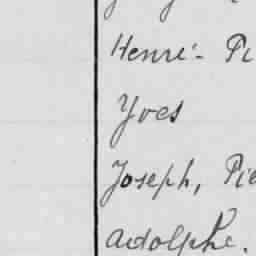 Henri- Pi
Yves
Joseph, Pie
Adolphe.